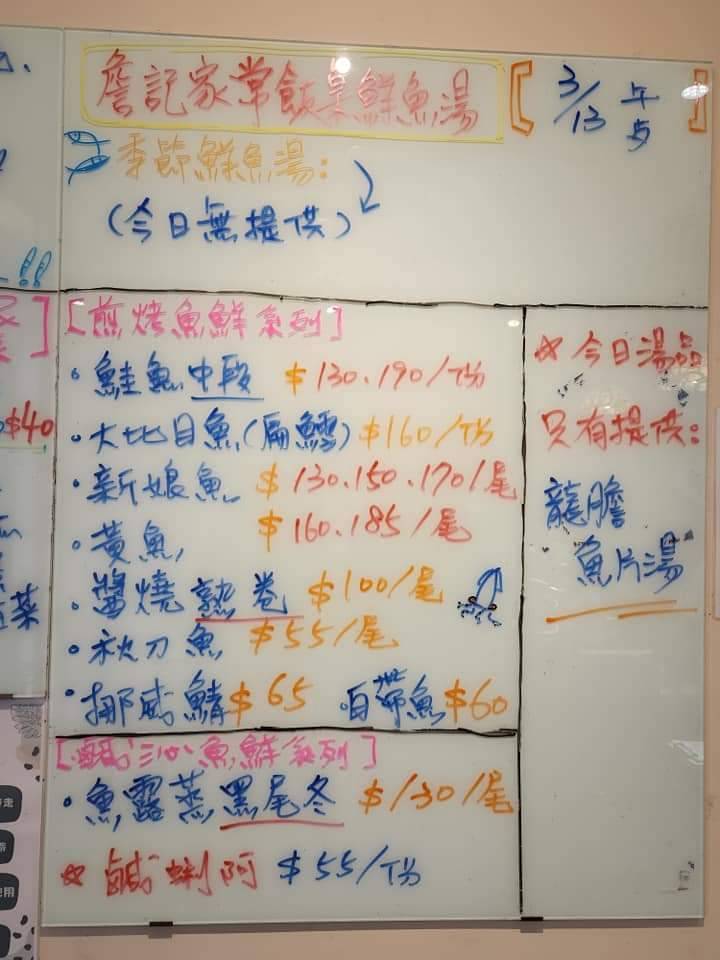 詹記家常飯菜鮮魚湯
[3/13 午占]
季節鮮魚湯：
(今日無提供)
!!
[煎烤魚鮮系列]
・鮭魚中段 $130.190/份
・大比目魚(扁鱈) $160/份
・新娘魚 $130.150.170/尾
・黃魚 $160.185/尾
・醬燒熟卷 $100/尾
・秋刀魚 $55/尾
・挪威鯖 $65 白帶魚 $60
魚鮮系列]
・魚露蒸黑尾冬 $130/尾
☆ 鹹蜊阿 $55/份
☆ 今日湯品
只有提供：
龍膽
魚片湯
$40
菜
走
用